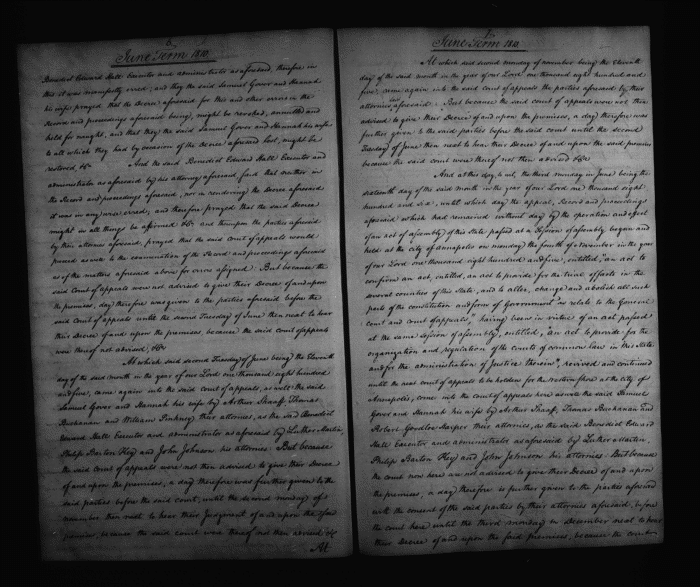 June Term 1810.
Benedict Edward Hall Executor and administrator as aforesaid, therefore in
this it was manifestly erred; and they the said Samuel Gover and Hannah
his wife prayed, that the Decree aforesaid for this and other errors in the
Record and proceedings aforesaid being, might be revoked, annulled and
held for nought, and that they the said Samuel Gover and Hannah his wife
to all which they had by occasion of the Decree aforesaid lost, might be
restored &c.
And the said Benedict Edward Hall Executor and
administrator as aforesaid by his attorney aforesaid said that neither in
the Record and proceedings aforesaid, nor in rendering the Decree aforesaid
it was in any wise erred; and therefore prayed that the said Decree
might in all things be affirmed &c. and thereupon the parties aforesaid
by their attornies aforesaid, prayed that the said court of appeals would
proceed as well to the examination of the Record and proceedings aforesaid
as of the matters aforesaid above for error assigned. But because the
said Court of appeals were not advised to give their Decree of and upon
the premises, day therefore was given to the parties aforesaid before the
said Court of appeals until the second Tuesday of June then next to hear
their Decree of and upon the premises, because the said Court of appeals
were thereof not advised, &c.
At which said second Tuesday of June being the Eleventh
day of the said month in the year of our Lord one thousand eight hundred
and five, came again into the said Court of appeals, as well the said
Samuel Gover and Hannah his wife by Arthur Shaaff, Thomas
Buchanan and William Pinkney their attornies, as the said Benedict
Edward Hall Executor and administrator as aforesaid by Luther Martin,
Philip Barton Key and John Johnson his attornies. But because
the said Court of appeals were not then advised to give their Decree
of and upon the premises, a day therefore was further given to the
said parties before the said court, until the second monday of
November then next to hear their Judgment of and upon the
premises, because the said court were thereof not then advised &c.
At
June Term 1810.
At which said second monday of november being the Eleventh
day of the said month in the year of our Lord one thousand eight hundred and
five, came again into the said court of appeals the parties aforesaid by their
attornies aforesaid. But because the said court of appeals were not then
advised to give their Decree of and upon the premises, a day therefore was
further given to the said parties before the said court until the second
Tuesday of June then next to hear their Decree of and upon the said premises
because the said court were thereof not then advised &c.
And at this day, to wit, the third monday in June being the
sixteenth day of the said month in the year of our Lord one thousand eight
hundred and six, until which day the appeal, Record and proceedings
aforesaid which had remained without day by the operation and effect
of an act of assembly of this State passed at a Session of assembly begun and
held at the city of annapolis on monday the fourth of november in the year
of our Lord one thousand eight hundred and five, entitled, "an act to
confirm an act, entitled, an act to provide for the trial of facts in the
several counties of this State, and to alter, change and abolish all such
parts of the constitution and form of Government as relate to the General
court and court of appeals," having been in virtue of an act passed
at the same session of assembly, entitled, "an act to provide for the
organization and regulation of the courts of common law in this State
and for the administration of Justice therein", revived and continued
until the next court of appeals to be holden for the western shore at the city of
Annapolis, come into the court of appeals here as well the said Samuel
Gover and Hannah his wife by Arthur Shaaff, Thomas Buchanan and
Robert Goodloe Harper their attornies, as the said Benedict Edward
Hall Executor and administrator as aforesaid by Luther Martin,
Philip Barton Key and John Johnson his attornies. But because
the court now here are not advised to give their Decree of and upon
the premises, a day therefore is further given to the parties aforesaid
with the consent of the said parties by their attornies aforesaid, before
the court here until the third monday in December next to hear
their Decree of and upon the said premises, because the court